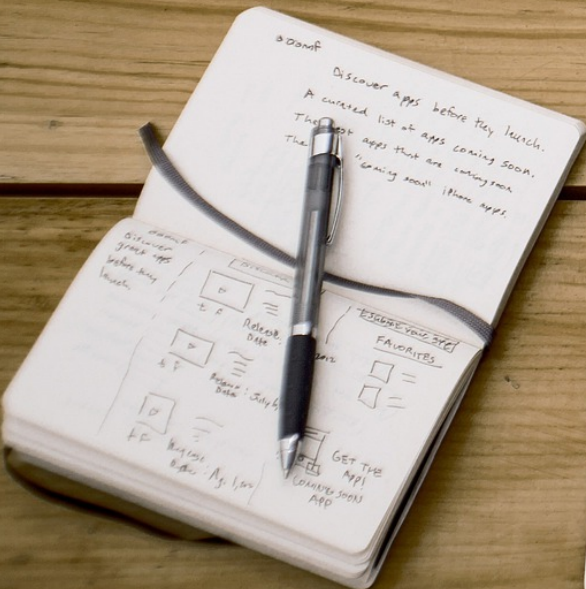 ooomf
Discover apps before they launch.
A curated list of apps coming soon.
The best apps that are coming soon
The "coming soon" iphone apps.
ooomf
Discover
great apps
before they
launch.
t F
Release
Date
t F
Release
Date: July
t F
Release
Date: Aug. 1,
FAVORITES
GET THE
App!
COMING SOON
APP